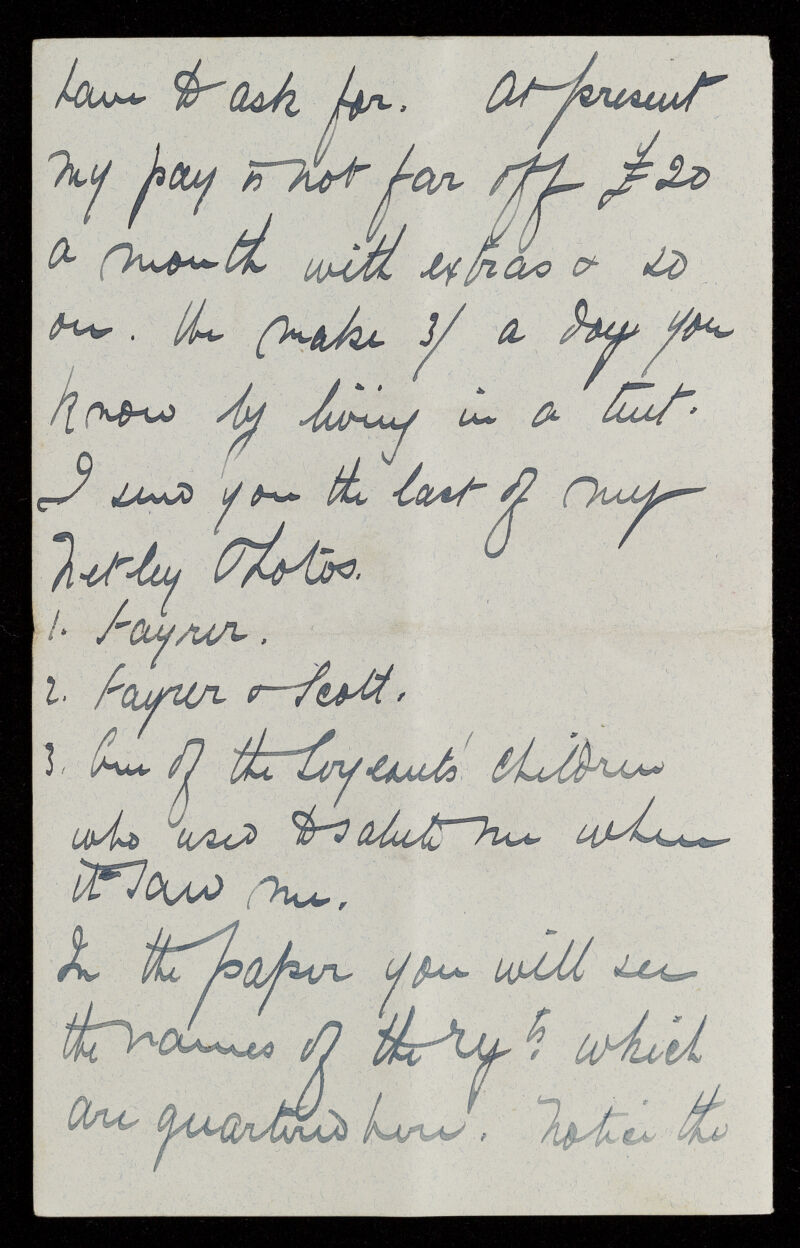 have to ask for. At present
my pay is not far off £20
a month with extras & so
on. We make 3/ a day you
know by living in a tent.
I send you the last of my
Netley Photos.
1. Fayrer.
2. Fayrer & Scott.
3. One of the Sergeants' children
who used to salute me when
it saw me.
In the paper you will see
the names of the rgts. which
are quartered here. Notice the